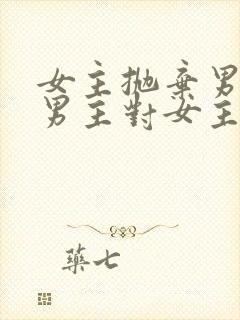 女主拋棄男
男主對女主
藥七